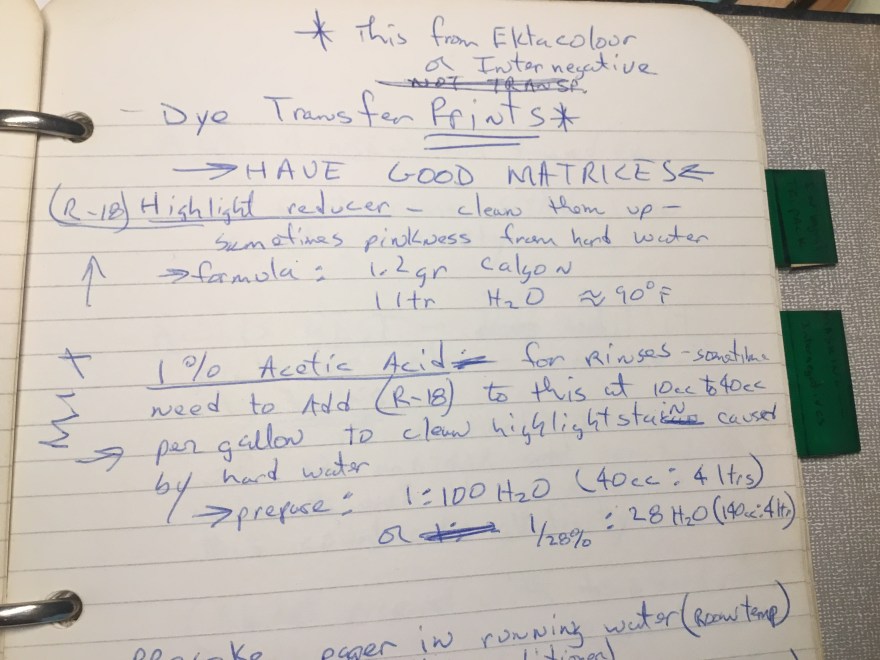 * This from Ektacolour
or Internegative
NOT TRANSP.
- Dye Transfer Prints *
→ HAVE GOOD MATRICES ←
(R-18) Highlight reducer - clean them up -
sometimes pinkness from hard water
↑ → formula: 1.2 gr Calgon
1 ltr H2O ≈ 90°F
1% Acetic Acid for Rinses - sometime
need to Add (R-18) to this at 10cc to 40cc
→ per gallon to clean highlight stain caused
by hard water
→ prepare: 1:100 H2O (40cc: 4 ltrs)
or 1/28% : 28 H2O (140cc:4ltr)
paper in running water (Room temp)